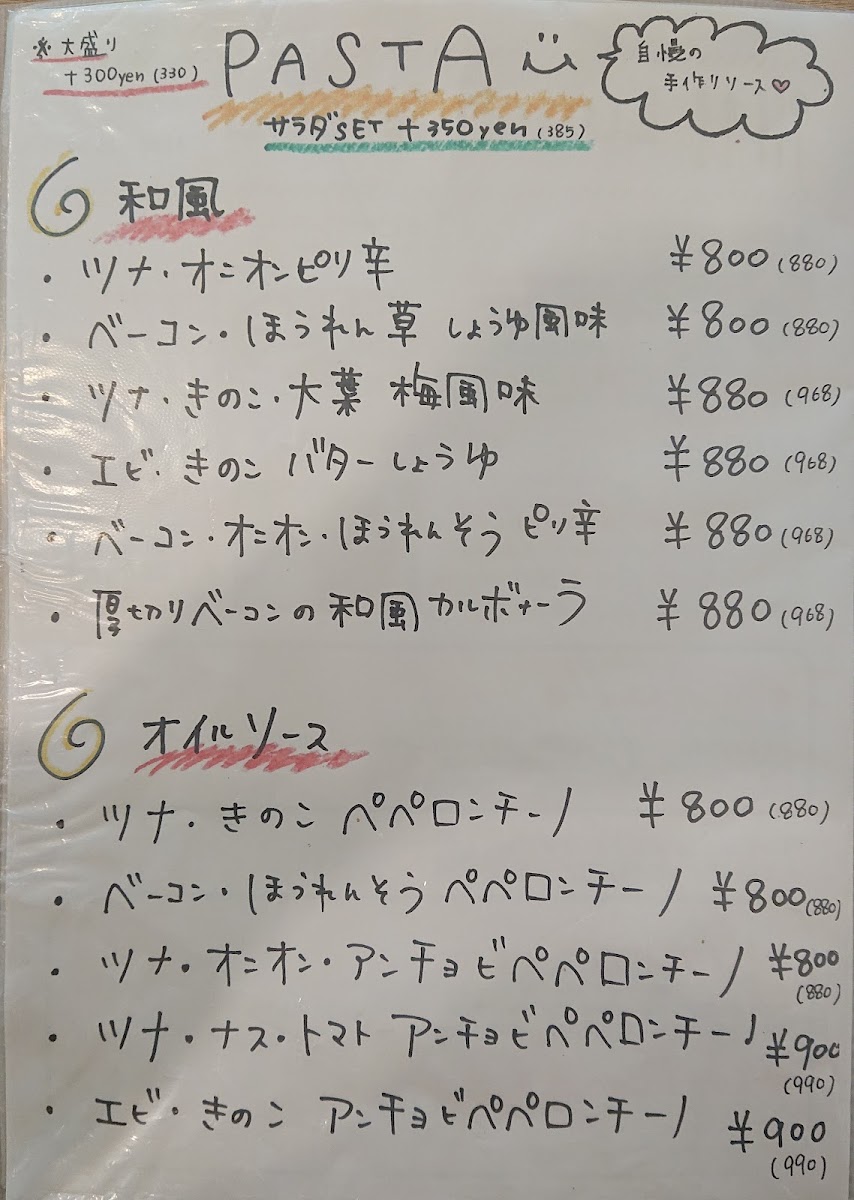 ※大盛り
+300yen (330)
PASTA
自慢の
手作りソース♡
サラダSET +350yen (385)
和風
・ツナ・オニオンピリ辛 ¥800 (880)
・ベーコン・ほうれん草 しょうゆ風味 ¥800 (880)
・ツナ・きのこ・大葉 梅風味 ¥880 (968)
・エビ・きのこ バターしょうゆ ¥880 (968)
・ベーコン・オニオン・ほうれんそう ピリ辛 ¥880 (968)
・厚切りベーコンの和風カルボナーラ ¥880 (968)
オイルソース
・ツナ・きのこ ペペロンチーノ ¥800 (880)
・ベーコン・ほうれんそう ペペロンチーノ ¥800 (880)
・ツナ・オニオン・アンチョビペペロンチーノ ¥800
(880)
・ツナ・ナス・トマト アンチョビペペロンチーノ ¥900
(990)
・エビ・きのこ アンチョビペペロンチーノ ¥900
(990)